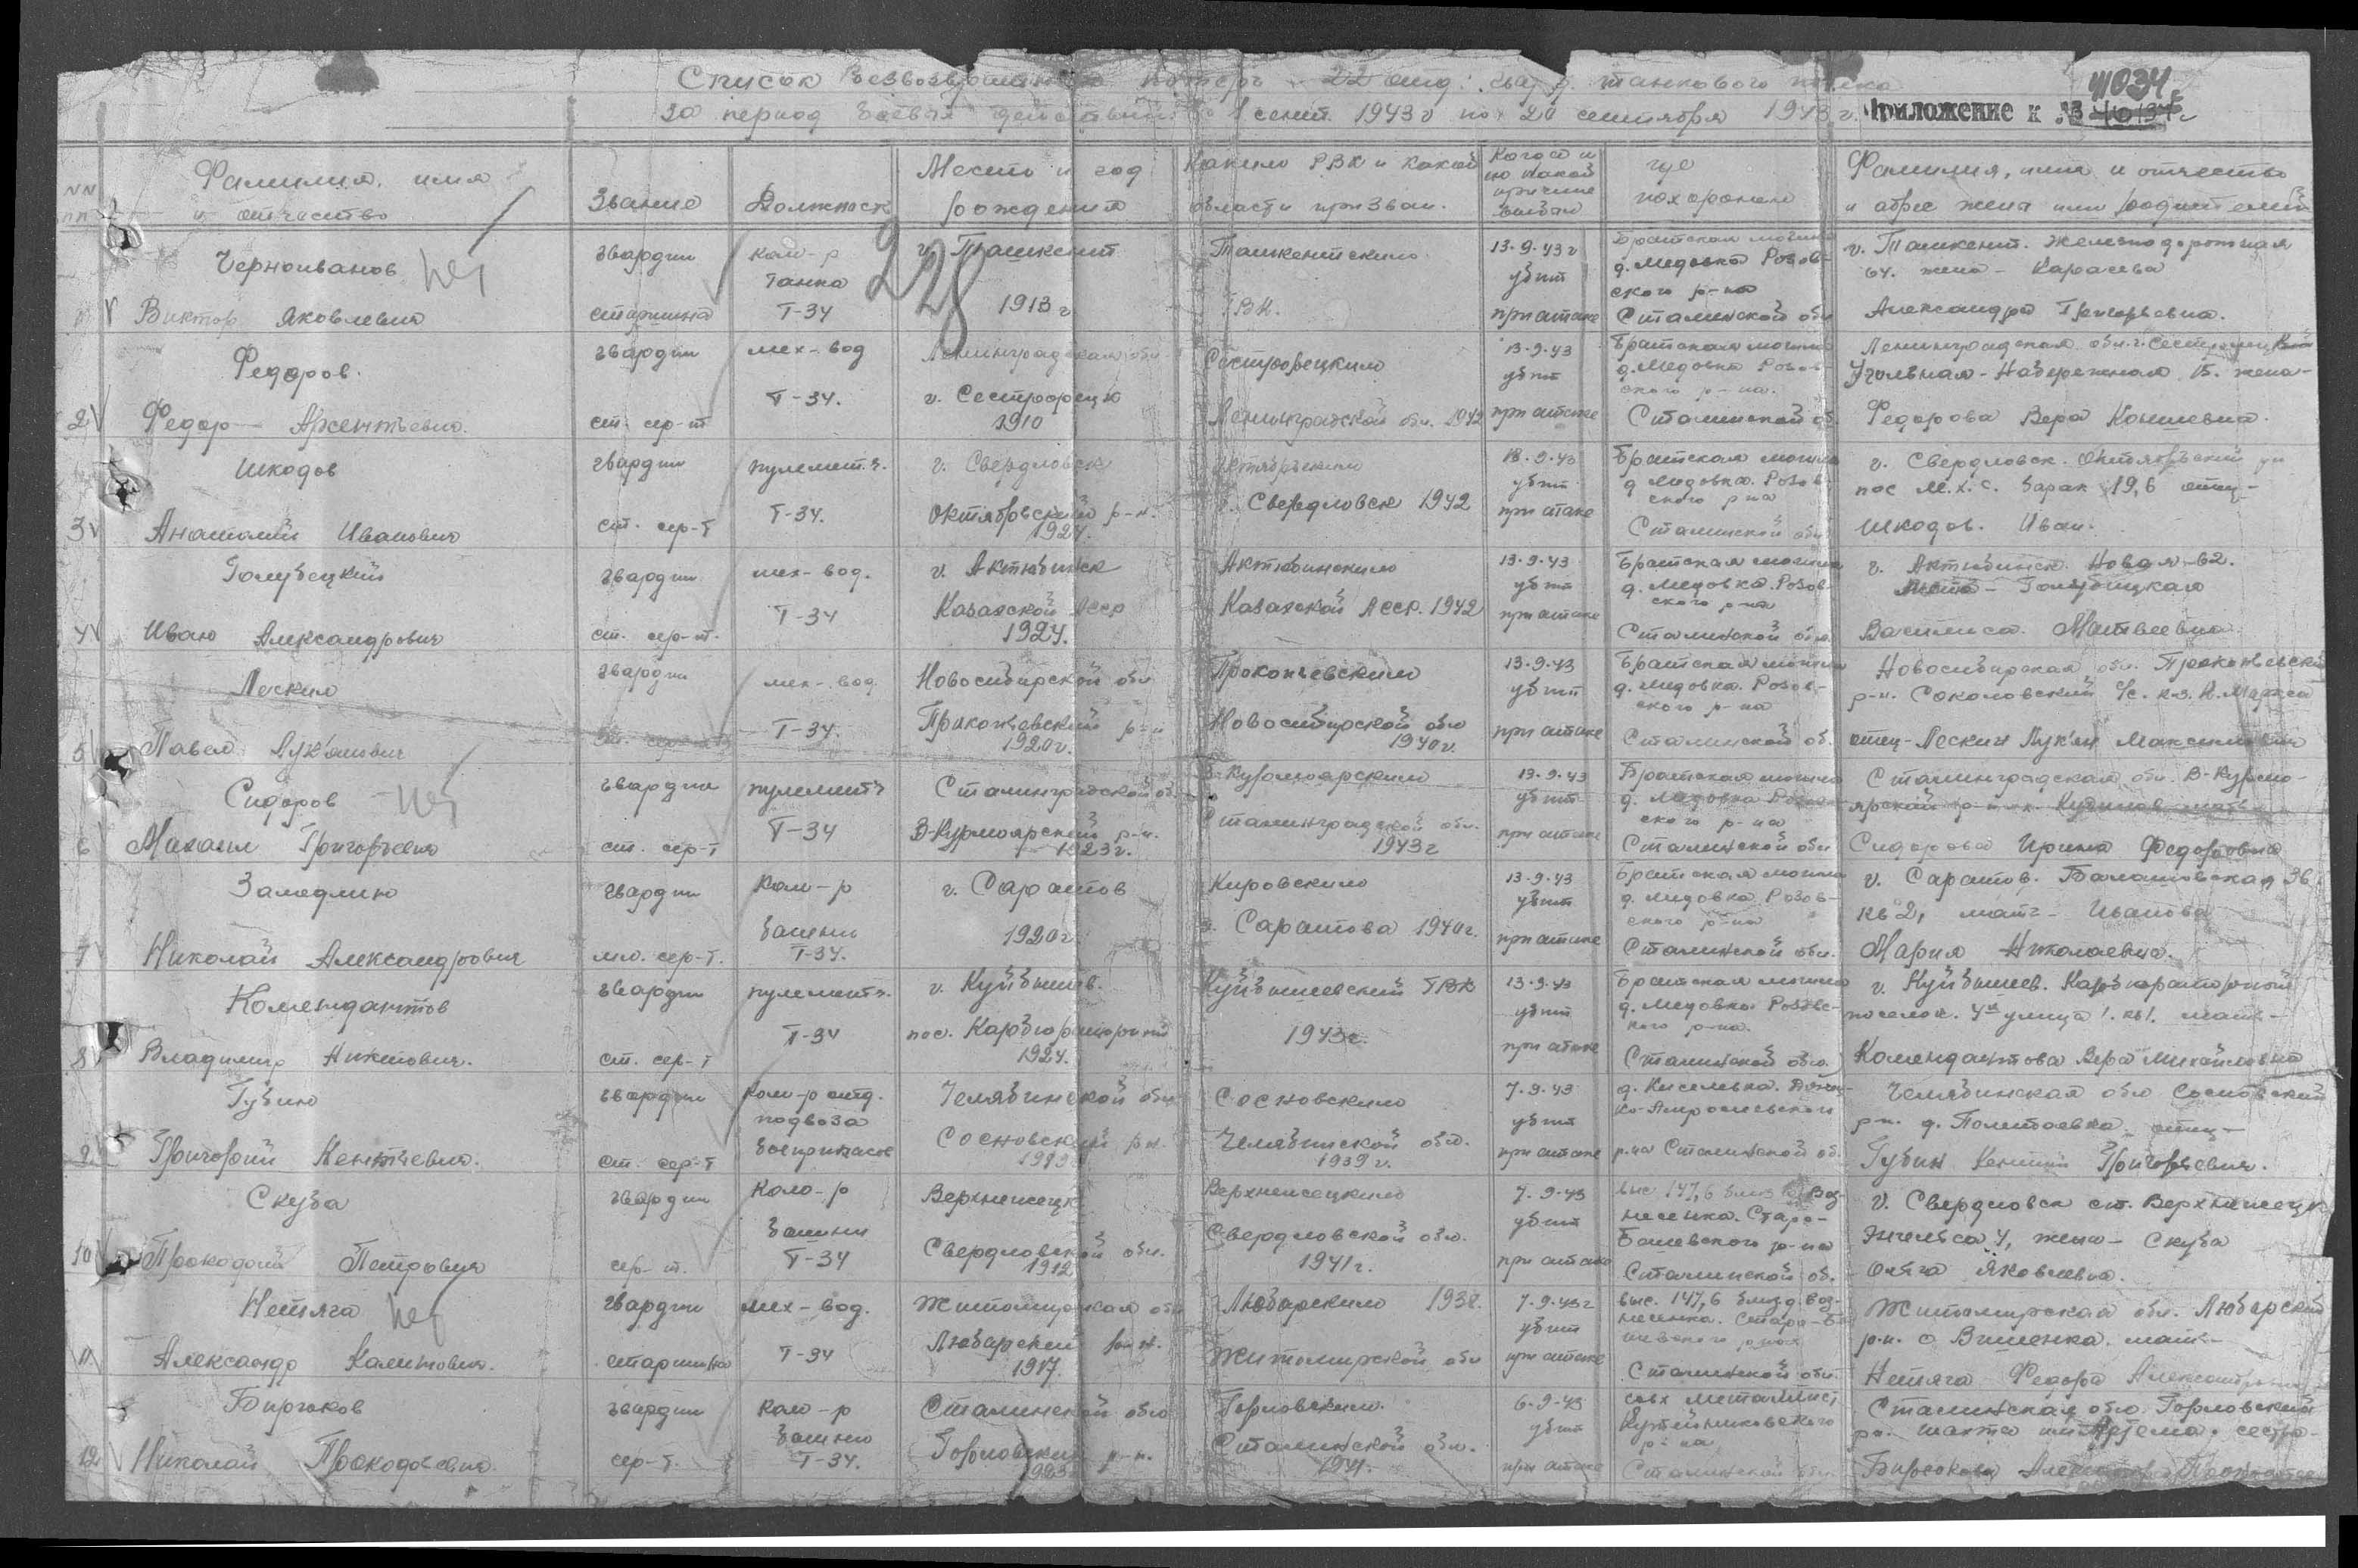 Список безвозвратных потерь 22 отд. гвард. танкового полка
за период боевых действий с 1 сент. 1943 г по 20 сентября 1943 г.
41034
Приложение к
NN пп
Фамилия, имя и отчество
Звание
Должность
Место и год рождения
Каким РВК и какой области призван.
Когда и по какой причине выбыл
где похоронен
Фамилия, имя и отчество и адрес жены или родителей
228
Черноиванов нет Виктор Яковлевич
гвардии старшина
ком-р танка Т-34
г. Ташкент 1913 г
Ташкентским ГВК.
13-9-43 г убит при атаке
Братская могила д. Медовка Розовского р-на Сталинской обл
г. Ташкент. Железнодорожная 64. жена - Карасева Александра Григорьевна.
2 Федоров. Федор Арсентьевич.
гвардии ст. сер-т
мех-вод Т-34.
Ленинградская обл. г. Сестрорецк 1910
Сестрорецким Ленинградской обл. 1942
13-9-43 убит при атаке
Братская могила д. Медовка Розовского р-на. Сталинской об.
Ленинградская обл. г. Сестрорецк Угольная-Набережная 15. жена - Федорова Вера
3 Шкодов Анатолий Иванович
гвардии ст. сер-т
пулемет. Т-34.
г. Свердловск Октябрьский р-н. 1924.
Октябрьским г. Свердловск 1942
13-9-43 убит при атаке
Братская могила д. Медовка. Розовского р-на Сталинской обл
г. Свердловск. Октябрьский рн пос М.х.с. барак 19,6 отец - Шкодов. Иван.
4 Голубецкий Иван Александрович
гвардии ст. сер-т.
мех-вод. Т-34
г. Актюбинск Казахской АССР 1924.
Актюбинским Казахской АССР. 1942
13-9-43 убит при атаке
Братская могила д. Медовка. Розовского р-на Сталинской обл.
г. Актюбинск. Новая-62. Голубецкая Василиса. Матвеевна.
5 Лескин Павел Лукъянович
гвардии ст. сер-т
мех-вод Т-34.
Новосибирской обл Прокопьевский р-н 1920 г.
Прокопьевским Новосибирской обл 1940 г.
13-9-43 убит при атаке
Братская могила д. Медовка. Розовского р-на Сталинской об.
Новосибирская обл. Прокопьевский р-н. Соколовский с/с. к-з. К. Маркса отец - Лескин Лукъян Максимович
6 Сидоров - нет Михаил Григорьевич
гвардии ст. сер-т
пулемет Т-34
Сталинградской об. В-Курмоярский р-н. 1923 г.
В-Курмоярским Сталинградской обл. 1943 г
13-9-43 убит при атаке
Братская могила д. Медовка Розовского р-на Сталинской обл
Сталинградская обл. В-Курмоярский р-н Сидорова Ирина Федоровна
7 Замедлин Николай Александрович
гвардии мл. сер-т.
ком-р башни Т-34.
г. Саратов 1920 г
Кировским г. Саратова 1940 г.
13-9-43 убит при атаке
Братская могила д. Медовка Розовского р-на Сталинской обл.
г. Саратов. Балашовская 36 кв 2, мать - Иванова Мария Николаевна.
8 Комендантов Владимир Никитович.
гвардии ст. сер-т
пулемет Т-34
г. Куйбышев. пос. Карбюраторный 1924.
Куйбышевский ГВК 1943 г.
13-9-43 убит при атаке
Братская могила д. Медовка Розовского р-на. Сталинской обл.
г. Куйбышев. Карбюраторный поселок. 4я улица 1. кв 1. мать - Комендантова Вера Михайловна
9 Губин Григорий
гвардии ст. сер-т
Ком-р отд. подвоза боеприпасов
Челябинской обл Сосновский р-н.
Сосновским Челябинской обл. 1939 г.
7-9-43 убит при атаке
д. Киселевка. р-на Сталинской об.
Челябинская обл Сосновский р-н. д. Полетаевка. отец - Губин Григорьевич.
10 Скуба Прокофий Петрович
гвардии сер-т.
Ком-р башни Т-34
Верхнеисецк Свердловской обл. 1912
Верхнеисецким Свердловской обл. 1941 г.
7-9-43 убит при атаке
выс 147,6 близ д. Вознесенка. Старо-Бешевского р-на Сталинской об.
г. Свердловск ст. Верхнеисецк Энгельса 4, жена - Скуба Ольга Яковлевна.
11 Нетяга нет Александр
гвардии старшина
мех-вод. Т-34
Житомирская обл Любарский р-н. 1917.
Любарским 1938. Житомирской обл
7-9-43 г убит при атаке
выс. 147,6 близ д. Вознесенка. Сталинской обл.
Житомирская обл. Любарский р-н. с Вишенка. мать - Нетяга
12 Бирюков Николай Прокофьевич
гвардии сер-т.
Ком-р башни Т-34.
Сталинской обл Горловский р-н. 1923
Горловским. Сталинской обл. 1941.
6-9-43 убит при атаке
свх Металлист, Кутейниковского р-на Сталинской обл
Сталинская обл. Горловский р-н. шахта им Артема. сестра - Бирюкова